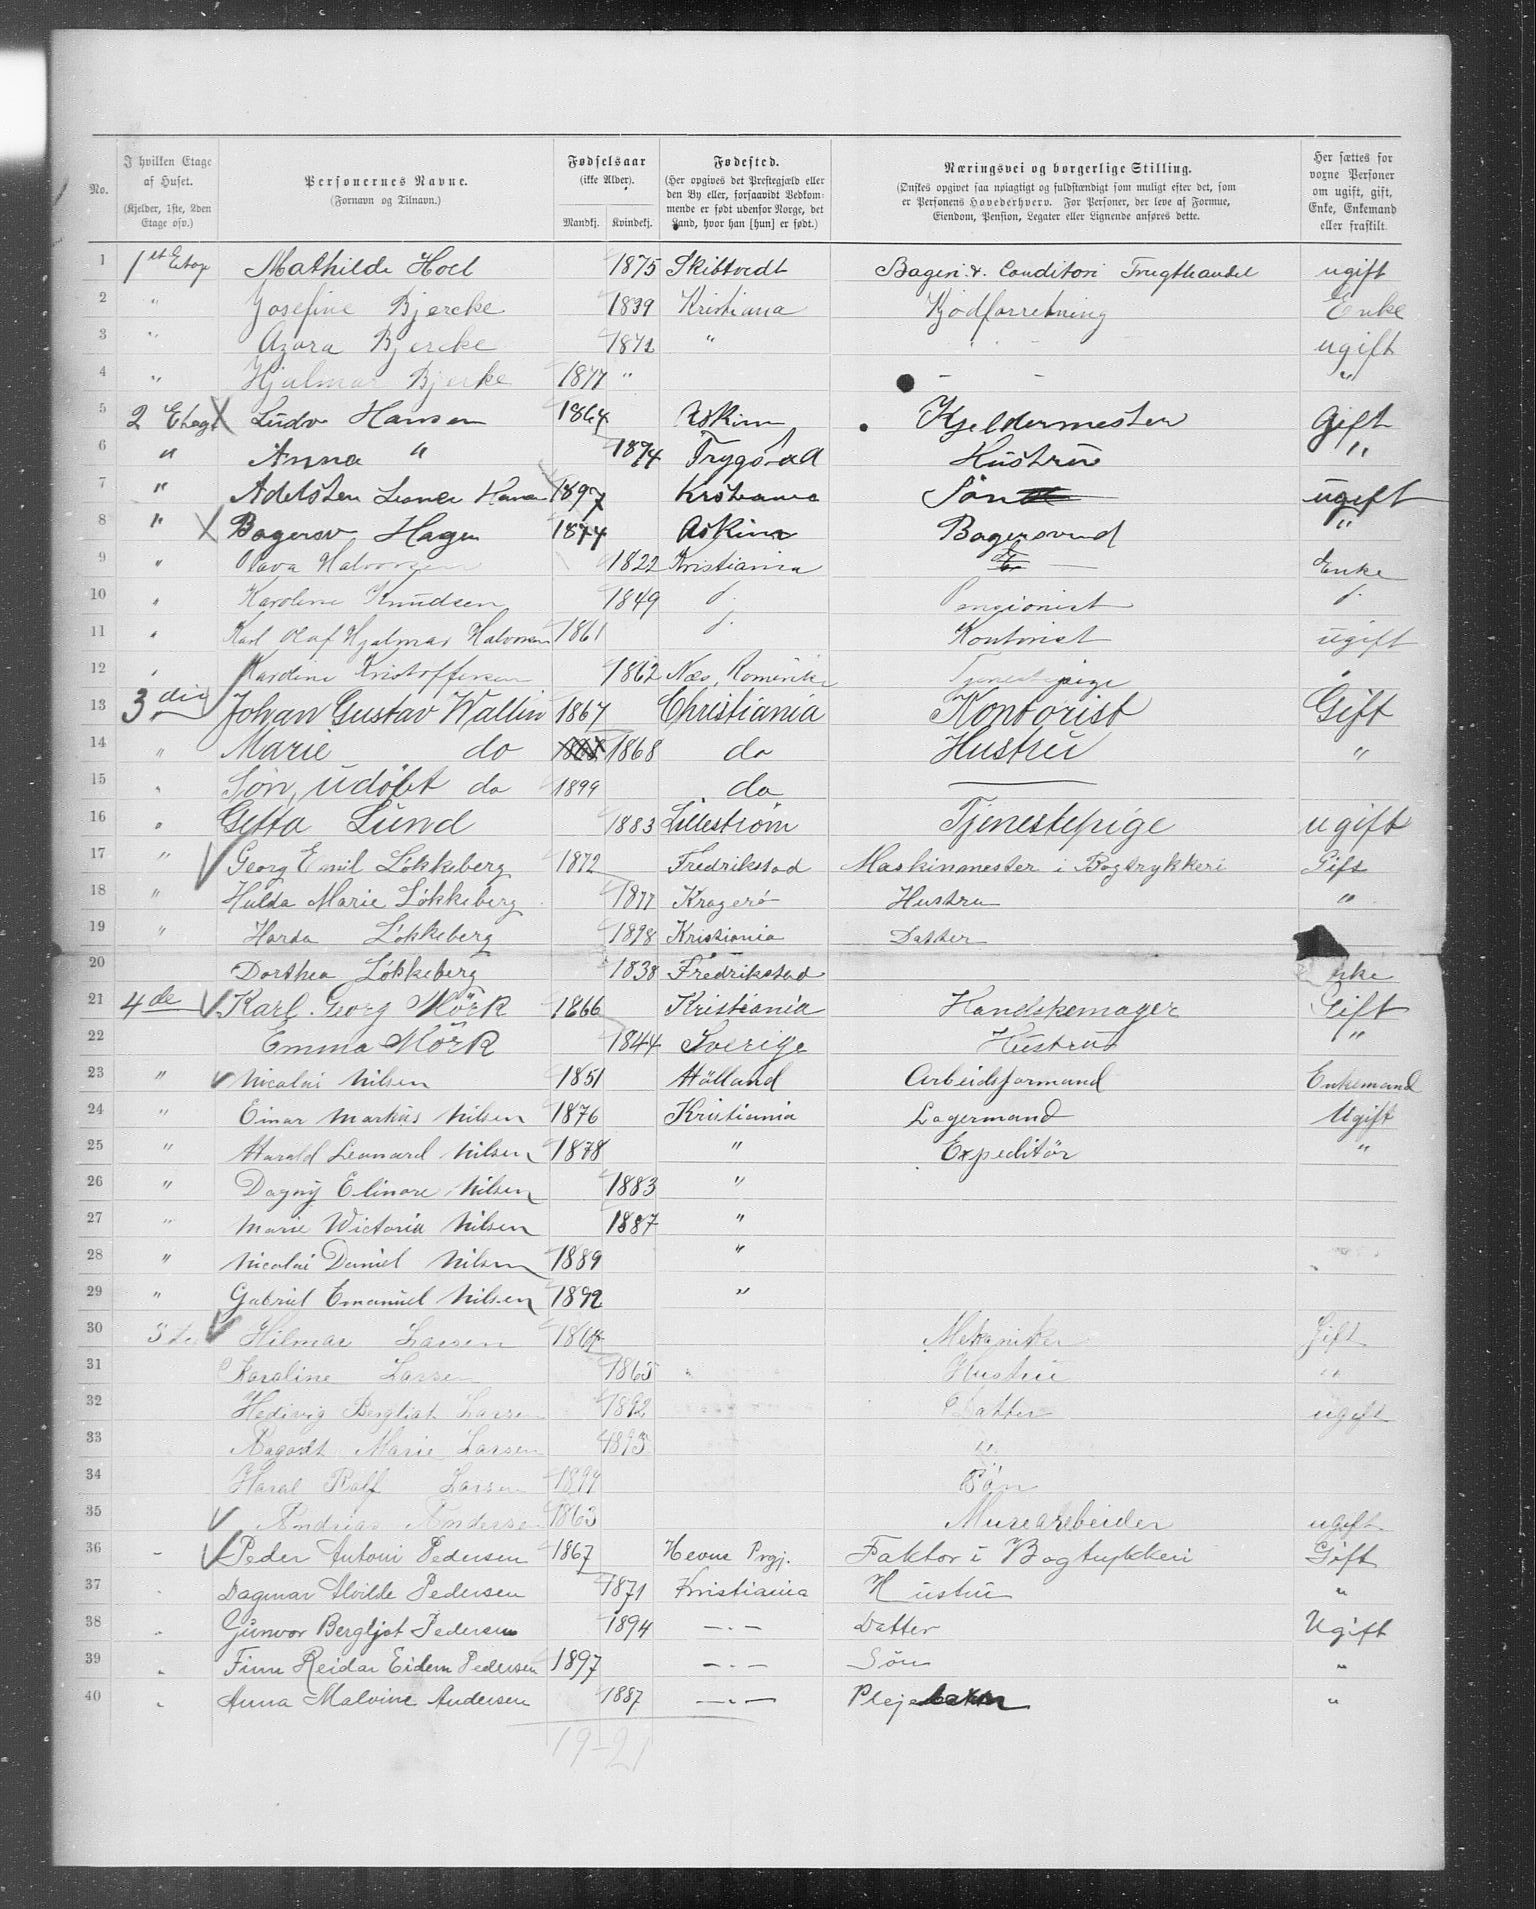 No. | I hvilken Etage af Huset. (Kjelder, 1ste, 2den Etage osv.) | Personernes Navne. (Fornavn og Tilnavn.) | Fødselsaar (ikke Alder). Mandkj. Kvindekj. | Fødested. (Her opgives det Prestegjæld eller den By eller, forsaavidt Vedkommende er født udenfor Norge, det Land, hvor han [hun] er født.) | Næringsvei og borgerlige Stilling. (Ønskes opgivet saa nøiagtigt og fuldstændigt som muligt efter det, som er Personens Hovederhverv. For Personer, der leve af Formue, Eiendom, Pension, Legater eller Lignende anføres dette. | Her sættes for voxne Personer om ugift, gift, Enke, Enkemand eller fraskilt.
1 1st Etage Mathilde Hoel 1875 Skibtvedt Bageri & Conditori Frugthandel ugift
2 " Josefine Bjercke 1839 Kristiania Kjödforretning Enke
3 " Azora Bjercke 1872 " ugift
4 " Hjalmar Bjerke 1877 " - - "
5 2 Etage Ludv Hansen 1864 Askim Kjeldermester Gift
6 " Anna " 1874 Trygstad Hustru "
7 " Adelsten Hansen 1897 Kristiania Sön ugift
8 " Bagersv Hagen 1874 Askim Bagersvend "
9 " Olava Halvorsen 1822 Kristiania Enke
10 " Karoline Knudsen 1849 d. Pensionist d.
11 " Karl Olaf Hjalmar Halvorsen 1861 d. Kontorist ugift
12 " Kardine Kristoffersen 1862 Næs, Romerike Tjenestepige "
13 3die Johan Gustav Wallin 1867 Christiania Kontorist Gift
14 " Marie do 1868 do Hustru "
15 " Søn, udöbt do 1899 do
16 " Getta Lund 1883 Lilleström Tjenestepige ugift
17 " Georg Emil Lökkeberg 1872 Fredrikstad Maskinmester i Bogtrykkeri Gift
18 " Hulda Marie Lökkeberg 1877 Kragerö Hustru "
19 " Harda Lökkeberg 1898 Kristiania Datter
20 Dorthea Lökkeberg 1838 Fredrikstad nke
21 4de Karl Georg Mörk 1866 Kristiania Handskemager Gift
22 Emma Mörk 1844 Sverige Hustru "
23 " Nicolai Nilsen 1851 Hölland Arbeidsformand Enkemand
24 " Einar Markus Nilsen 1876 Kristiania Lagermand Ugift
25 " Harald Leonard Nilsen 1878 " Expeditör "
26 " Dagny Elinore Nilsen 1883 "
27 " Marie Wictoria Nilsen 1887 "
28 " Nicolai Daniel Nilsen 1889 "
29 " Gabriel Emanuel Nilsen 1892 "
30 5te Hilmar Larsen 1864 Mekaniker Gift
31 Karoline Larsen 1865 " Hustru "
32 Hedivig Bergliot Larsen 1892 Datter ugift
33 Marie Larsen 1895 "
34 Haral Rolf Larsen 1899 Sön
35 Andreas Anderse 1863 Murearbeider ugift
36 - Peder Antoni Pedersen 1867 Hevne Prgj. Faktor i Bogtrykkeri Gift
37 " Dagmar Alvilde Pedersen 1871 Kristiania Hustru "
38 " Gunvor Bergljot Pedersen 1894 —"— Datter Ugift
39 " Finn Reidar Eidem Pedersen 1897 —"— Sön "
40 " Anna Malvine Andersen 1887 —"— Plejedatter "
19-21